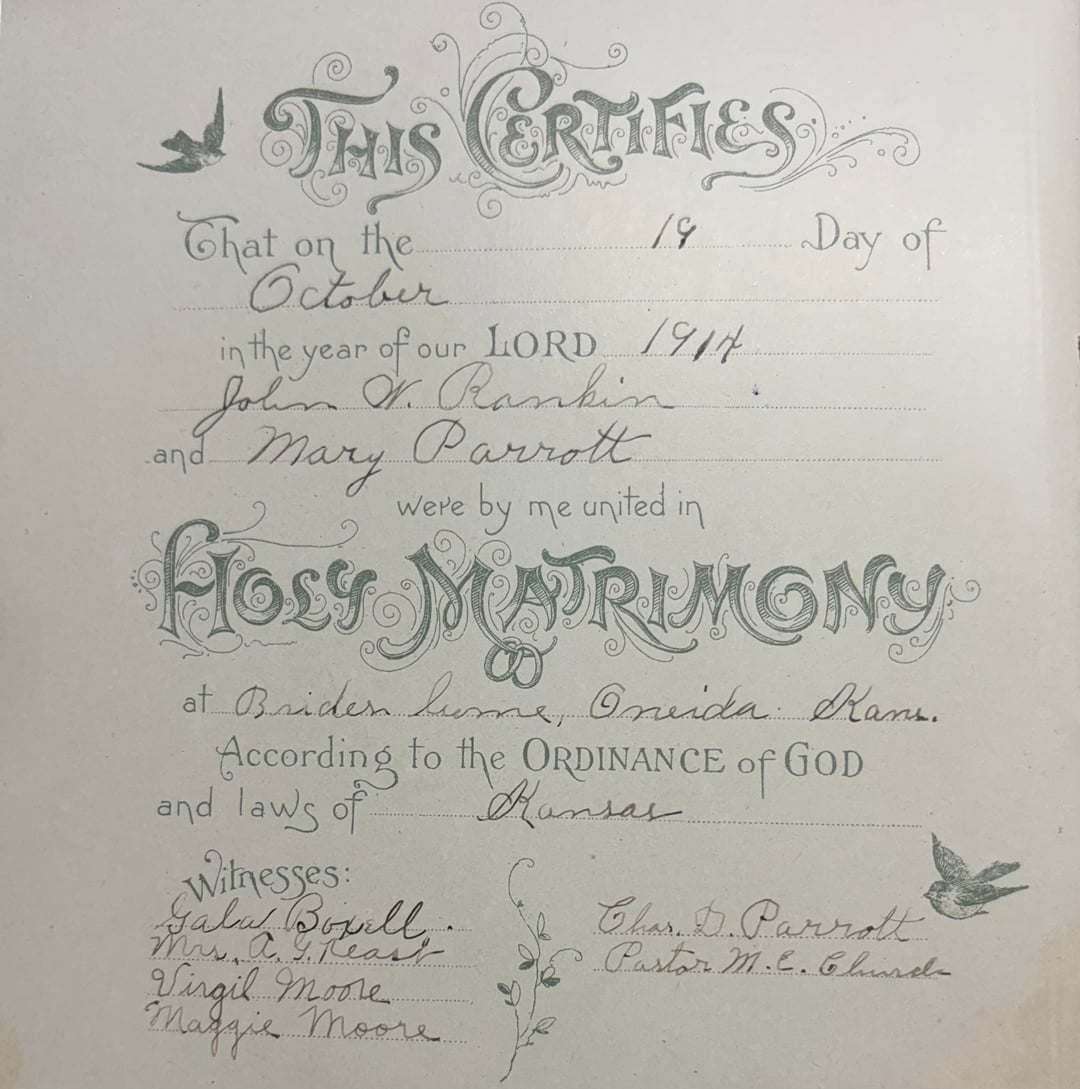 THIS CERTIFIES
That on the 19 Day of
October
in the year of our LORD 1914
John W. Rankin
and Mary Parrott
were by me united in
HOLY MATRIMONY
at Brides home, Oneida Kans.
According to the ORDINANCE of GOD
and laws of Kansas
Witnesses:
Gala Boxell.
Mrs. A. G. Keast
Virgil Moore
Maggie Moore
Chas. D. Parrott
Pastor M.E. Church